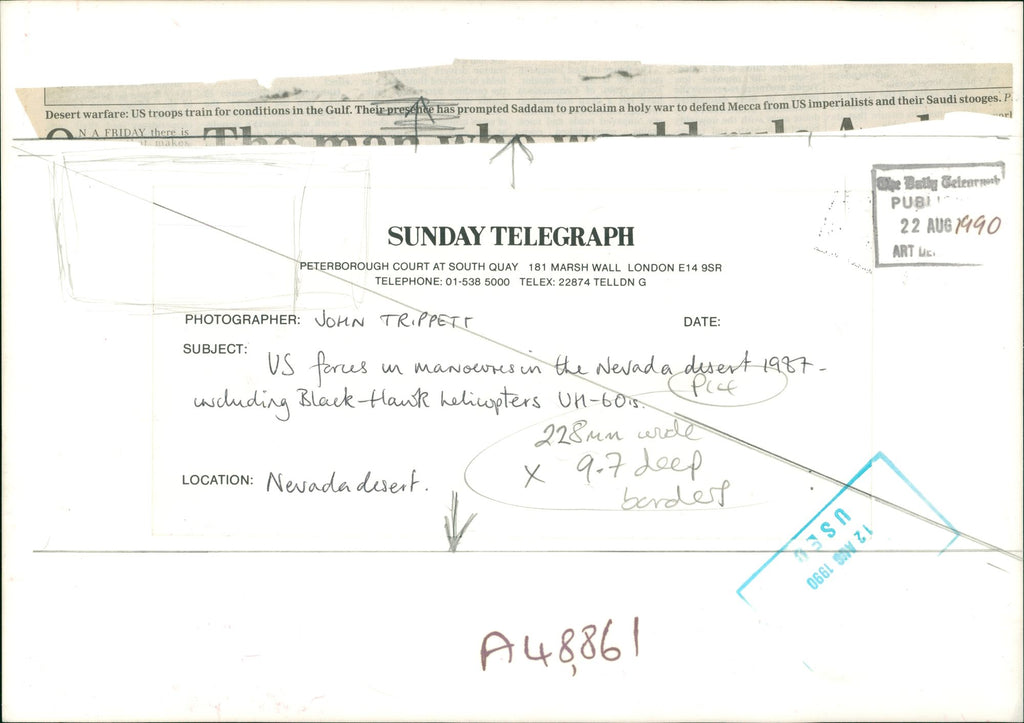 Desert warfare: US troops train for conditions in the Gulf. Their presence has prompted Saddam to proclaim a holy war to defend Mecca from US imperialists and their Saudi stooges. P
ON A FRIDAY there is
makes
The man who would rule
The Daily Telegraph
22 AUG 1990
ART
SUNDAY TELEGRAPH
PETERBOROUGH COURT AT SOUTH QUAY 181 MARSH WALL LONDON E14 9SR
TELEPHONE: 01-538 5000 TELEX: 22874 TELLDN G
PHOTOGRAPHER: JOHN TRIPPETT
DATE:
SUBJECT: US forces in manoevres in the Nevada desert 1987 -
including Black-Hawk helicopters UH-60s.
228mm wide
X 9.7 deep
borders
LOCATION: Nevada desert.
USED
12 AUG 1990
A48,861